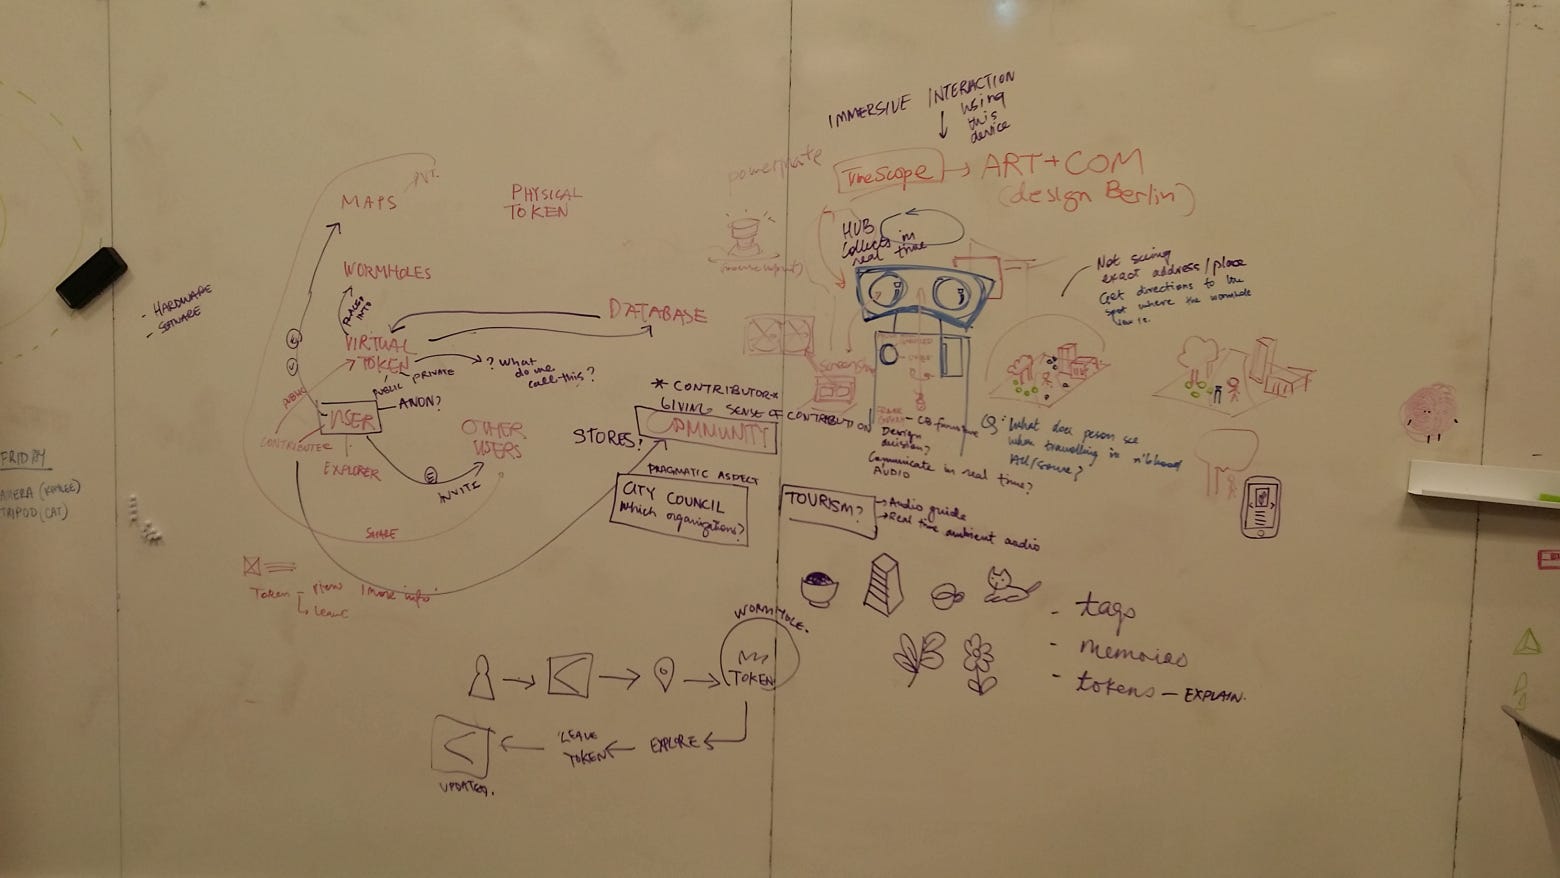 IMMERSIVE INTERACTION
using
this
device
powermate
TimeScope
ART+COM
(design Berlin)
MAPS
PHYSICAL
TOKEN
HUB
Collects in
real time
WORMHOLES
Not seeing
exact address/place
Get directions to the
spot where the wormhole
- HARDWARE
DATABASE
VIRTUAL
TOKEN
PUBLIC
PRIVATE
? What
do we
call this?
ANON?
PUBLIC
USER
CONTRIBUTER
EXPLORER
OTHER
USERS
INVITE
SHARE
* CONTRIBUTOR*
GIVING SENSE OF CONTRIBUTION
COMMUNITY
STORES?
PRAGMATIC ASPECT
CITY COUNCIL
Which organizations?
Design
decision?
Communicate in real time?
AUDIO
Q: What does person see
when travelling in
TOURISM?
Audio guide
Real time ambient audio
FRIDAY
TRIPOD (CAT)
Token - view
Leave
'more info'
WORMHOLE.
TOKEN
EXPLORE
LEAVE
TOKEN
UPDATED.
- tags
- memories
- tokens - EXPLAIN.